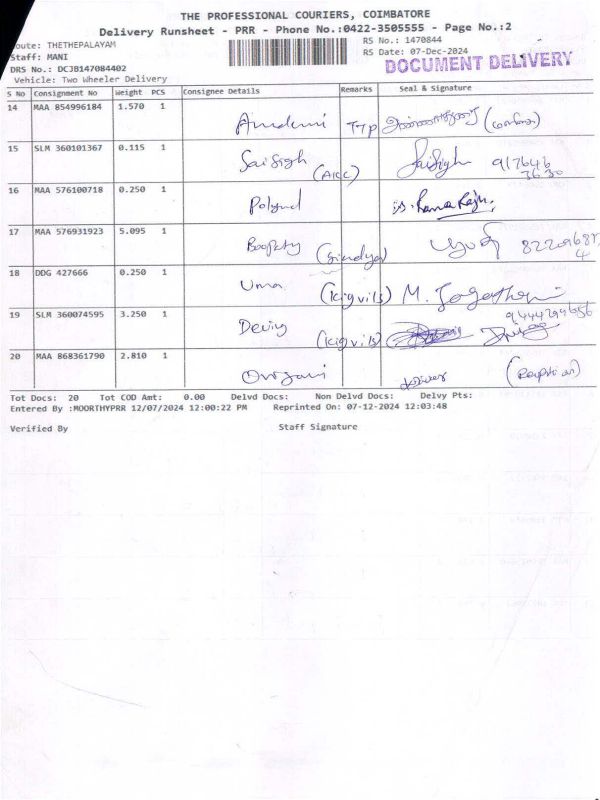 THE PROFESSIONAL COURIERS, COIMBATORE
Delivery Runsheet - PRR - Phone No.:0422-3505555 - Page No.:2
oute: THETHEPALAYAM
RS No.: 1470844
Staff: MANI
RS Date: 07-Dec-2024
DRS No.: DCJB147084402
DOCUMENT DELIVERY
Vehicle: Two Wheeler Delivery
S No Consignment No Weight PCS Consignee Details Remarks Seal & Signature
14 MAA 854996184 1.570 1
15 SLM 360101367 0.115 1 SaiSigh (AKC) SaiSigh 917646
3630
16 MAA 576100718 0.250 1 Polynd Rama Raju
17 MAA 576931923 5.095 1 Boopathy
18 DDG 427666 0.250 1 Uma (kigvils) M.
19 SLM 360074595 3.250 1 (kigvils) 9444299656
20 MAA 868361790 2.810 1
Tot Docs: 20 Tot COD Amt: 0.00 Delvd Docs: Non Delvd Docs: Delvy Pts:
Entered By :MOORTHYPRR 12/07/2024 12:00:22 PM Reprinted On: 07-12-2024 12:03:48
Verified By Staff Signature